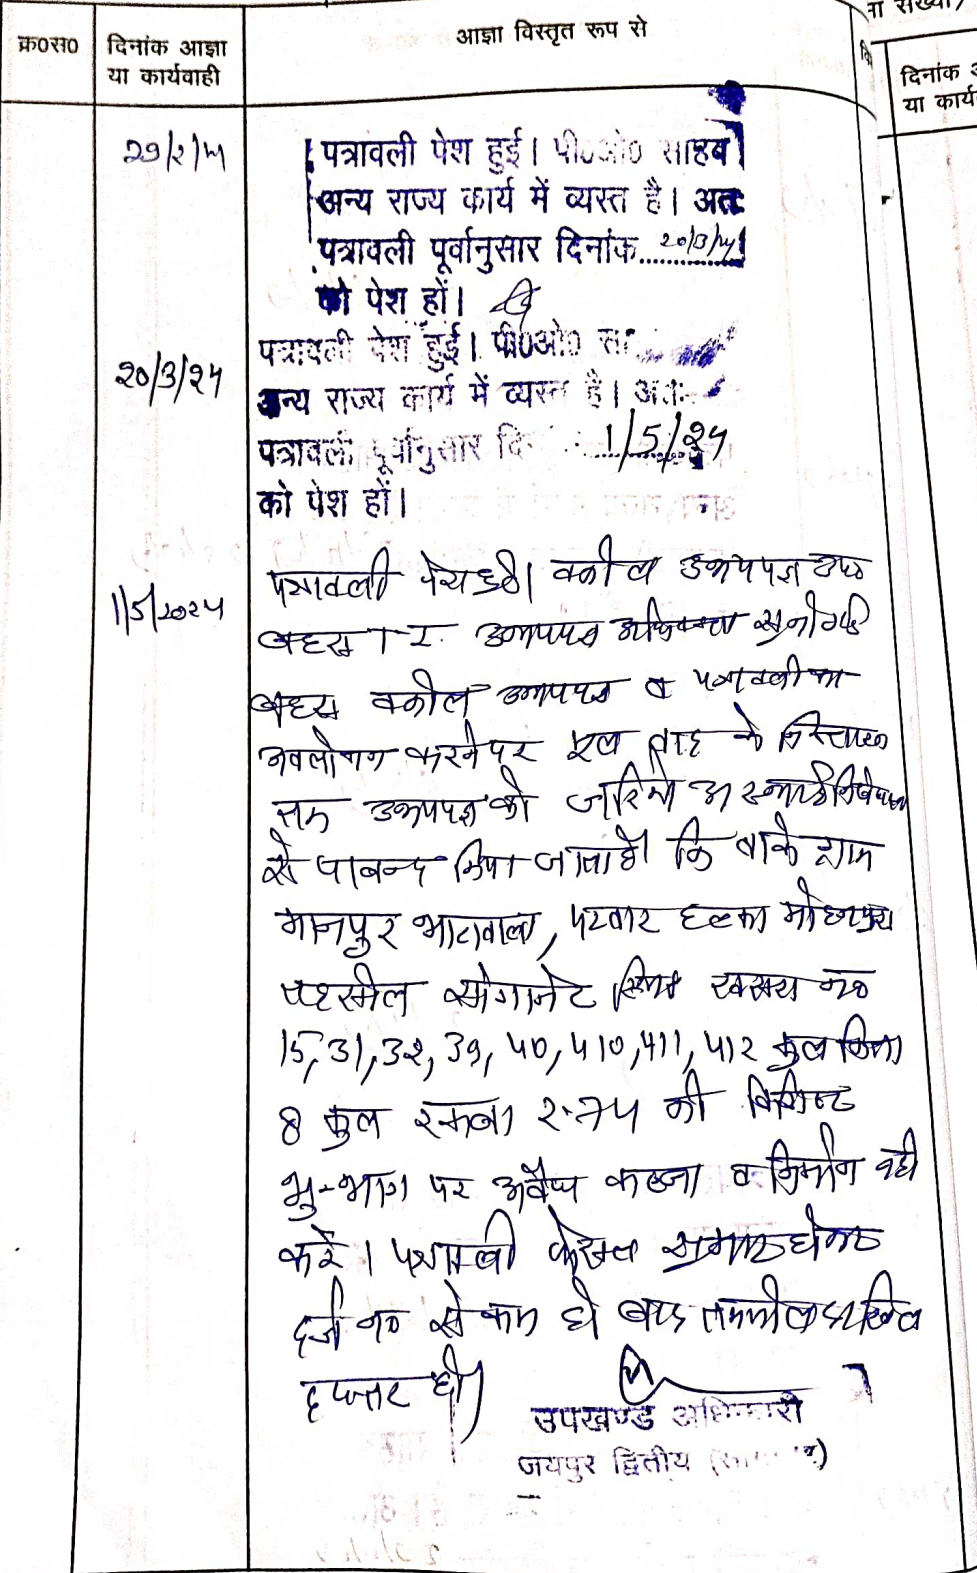 क्र०स०
दिनांक आज्ञा
या कार्यवाही
आज्ञा विस्तृत रूप से
दिनांक
या कार्य
29/2/24
पत्रावली पेश हुई। पी०ओ० साहब
अन्य राज्य कार्य में व्यस्त है। अतः
पत्रावली पूर्वानुसार दिनांक 20/3/24
को पेश हों।
20/3/24
पत्रावली पेश हुई। पी०ओ०
अन्य राज्य कार्य में व्यस्त है। अतः
पत्रावली पूर्वानुसार 1/5/24
को पेश हों।
1/5/2024
पत्रावली पेश हुई। वकील उभयपक्ष उप०
बहस T.I. उभयपक्ष सुनी गई
बहस वकील उभयपक्ष व पत्रावली का
अवलोकन करने पर मूल वाद के निस्तारण
तक उभयपक्ष को जरिये अस्थाई निषेधाज्ञा
से पाबन्द किया जाता है। कि वाके ग्राम
मानपुर भाटावाला, पटवार हल्का मोहनपुरा
तहसील सांगानेर स्थित खसरा न०
15, 31, 32, 39, 40, 410, 411, 412 कुल किता
8 कुल रकबा 2.74 की विशिष्ट
भु-भाग पर अवैध कब्जा व निर्माण नही
करे। पत्रावली फैसल शुमार होकर
दर्ज न० से कम हो बाद तकमील दाखिल
दफ्तर हो।
उपखण्ड अधिकारी
जयपुर द्वितीय